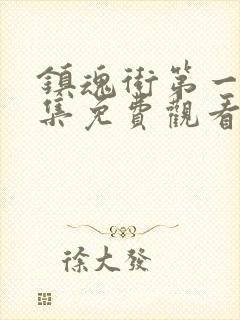 鎮魂街第一
集免費觀看
徐大發